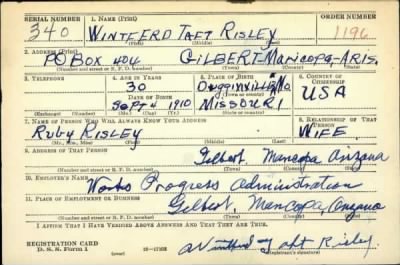 SERIAL NUMBER 1. NAME (Print) ORDER NUMBER
340 WINTFERD TAFT RISLEY 1196
(First) (Middle) (Last)
2. ADDRESS (Print)
PO BOX 404 GILBERT Maricopa, ARIS.
(Number and street or R. F. D. number) (Town) (County) (State)
3. TELEPHONE 4. AGE IN YEARS 5. PLACE OF BIRTH 6. COUNTRY OF CITIZENSHIP
30 MO. USA
DATE OF BIRTH (Town or county)
SEPT 4 1910 MISSOURI
(Exchange) (No.) (Mo.) (Day) (Yr.) (State or country)
7. NAME OF PERSON WHO WILL ALWAYS KNOW YOUR ADDRESS 8. RELATIONSHIP OF THAT PERSON
RUBY RISLEY WIFE
(Mr., Mrs., Miss) (First) (Middle) (Last)
9. ADDRESS OF THAT PERSON
Gilbert, Maricopa Arizona
(Number and street or R. F. D. number) (Town) (County) (State)
10. EMPLOYER'S NAME
Works Progress Administration
11. PLACE OF EMPLOYMENT OR BUSINESS
Gilbert, Maricopa, Arizona
(Number and street or R. F. D. number) (Town) (County) (State)
I AFFIRM THAT I HAVE VERIFIED ABOVE ANSWERS AND THAT THEY ARE TRUE.
REGISTRATION CARD
D. S. S. Form 1 Taft Risley
(Registrant's signature)